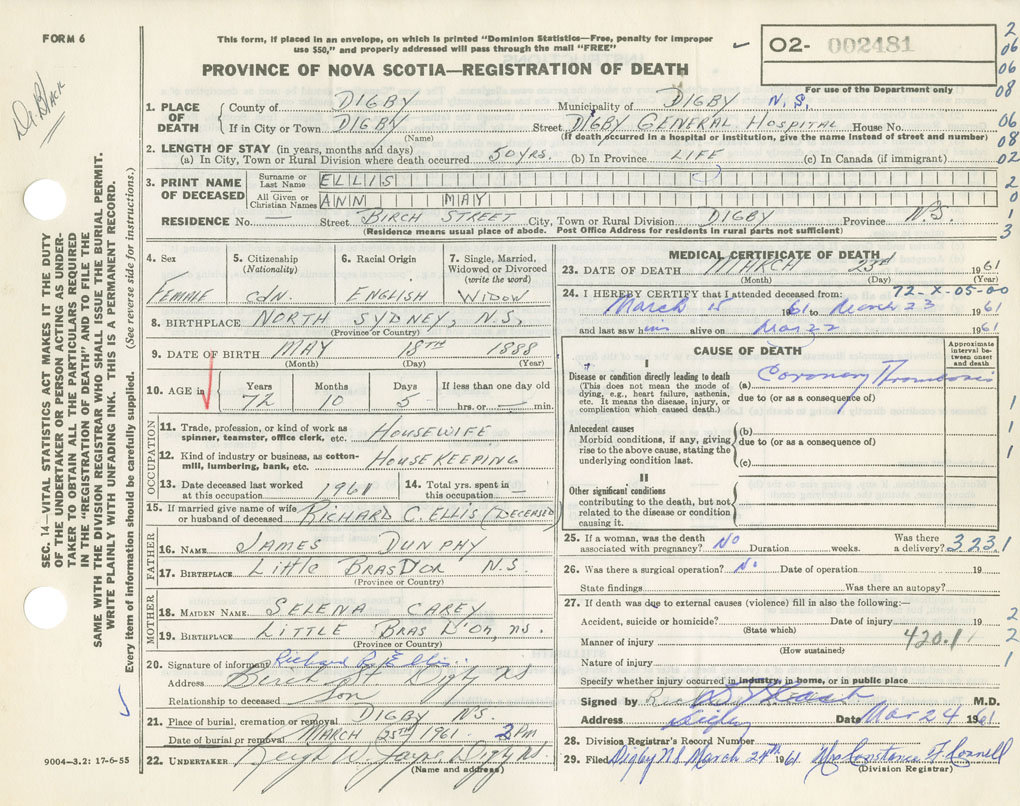 FORM 6
This form, if placed in an envelope, on which is printed "Dominion Statistics—Free, penalty for improper
use $50," and properly addressed will pass through the mail "FREE"
PROVINCE OF NOVA SCOTIA—REGISTRATION OF DEATH
02- 002481
For use of the Department only
Dr Black
SEC. 14—VITAL STATISTICS ACT MAKES IT THE DUTY
OF THE UNDERTAKER OR PERSON ACTING AS UNDER-
TAKER TO OBTAIN ALL THE PARTICULARS REQUIRED
IN THE "REGISTRATION OF DEATH" AND TO FILE THE
SAME WITH THE DIVISION REGISTRAR WHO SHALL ISSUE THE BURIAL PERMIT.
WRITE PLAINLY WITH UNFADING INK. THIS IS A PERMANENT RECORD.
Every item of information should be carefully supplied. (See reverse side for instructions.)
1. PLACE OF DEATH
County of DIGBY Municipality of DIGBY N.S.
If in City or Town DIGBY Street DIGBY GENERAL HOSPITAL House No.
(Name) (If death occurred in a hospital or institution, give the name instead of street and number)
2. LENGTH OF STAY (in years, months and days)
(a) In City, Town or Rural Division where death occurred 50 YRS. (b) In Province LIFE (c) In Canada (if immigrant)
3. PRINT NAME OF DECEASED
Surname or Last Name ELLIS
All Given or Christian Names ANN MAY
RESIDENCE No. — Street BIRCH STREET City, Town or Rural Division DIGBY Province N.S.
(Residence means usual place of abode. Post Office Address for residents in rural parts not sufficient)
4. Sex FEMALE
5. Citizenship (Nationality) CDN.
6. Racial Origin ENGLISH
7. Single, Married, Widowed or Divorced (write the word) WIDOW
8. BIRTHPLACE NORTH SYDNEY, N.S.
(Province or Country)
9. DATE OF BIRTH MAY 18TH 1888
(Month) (Day) (Year)
10. AGE in Years 72 Months 10 Days 5 If less than one day old
hrs. or min.
OCCUPATION
11. Trade, profession, or kind of work as spinner, teamster, office clerk, etc. HOUSEWIFE
12. Kind of industry or business, as cotton-mill, lumbering, bank, etc. HOUSEKEEPING
13. Date deceased last worked at this occupation 1961 14. Total yrs. spent in this occupation —
15. If married give name of wife or husband of deceased RICHARD C. ELLIS (DECEASED)
FATHER
16. NAME JAMES DUNPHY
17. BIRTHPLACE LITTLE BRAS D'OR N.S.
(Province or Country)
MOTHER
18. MAIDEN NAME SELENA CAREY
19. BIRTHPLACE LITTLE BRAS D'OR, N.S.
(Province or Country)
20. Signature of informant Richard Ellis
Address Birch St Digby NS
Relationship to deceased Son
21. Place of burial, cremation or removal DIGBY N.S.
Date of burial or removal MARCH 25TH 1961 2 PM
22. UNDERTAKER Digby NS.
(Name and address)
9004—3.2: 17-6-55
MEDICAL CERTIFICATE OF DEATH
23. DATE OF DEATH MARCH 23rd 1961
(Month) (Day) (Year)
72-X-05-00
24. I HEREBY CERTIFY that I attended deceased from:
March 15 1961 to March 23 1961
and last saw him alive on Mar 22 1961
CAUSE OF DEATH
Approximate interval between onset and death
I
Disease or condition directly leading to death
(This does not mean the mode of dying, e.g., heart failure, asthenia, etc. It means the disease, injury, or complication which caused death.)
(a) Coronary Thrombosis
due to (or as a consequence of)
Antecedent causes
Morbid conditions, if any, giving rise to the above cause, stating the underlying condition last.
(b)
due to (or as a consequence of)
(c)
II
Other significant conditions
contributing to the death, but not related to the disease or condition causing it.
25. If a woman, was the death associated with pregnancy? No Duration weeks. Was there a delivery? 3231
26. Was there a surgical operation? No Date of operation 19
State findings Was there an autopsy?
27. If death was due to external causes (violence) fill in also the following:—
Accident, suicide or homicide? Date of injury 19
(State which)
Manner of injury 420.1
(How sustained)
Nature of injury
Specify whether injury occurred in industry, in home, or in public place
Signed by M.D.
Address Digby Date Mar 24 1961
28. Division Registrar's Record Number
29. Filed Digby NS March 24th 1961 Mrs Constance F Connell
(Division Registrar)
2
06
06
08
06
08
02
2
0
1
3
1
1
1
2
2
1